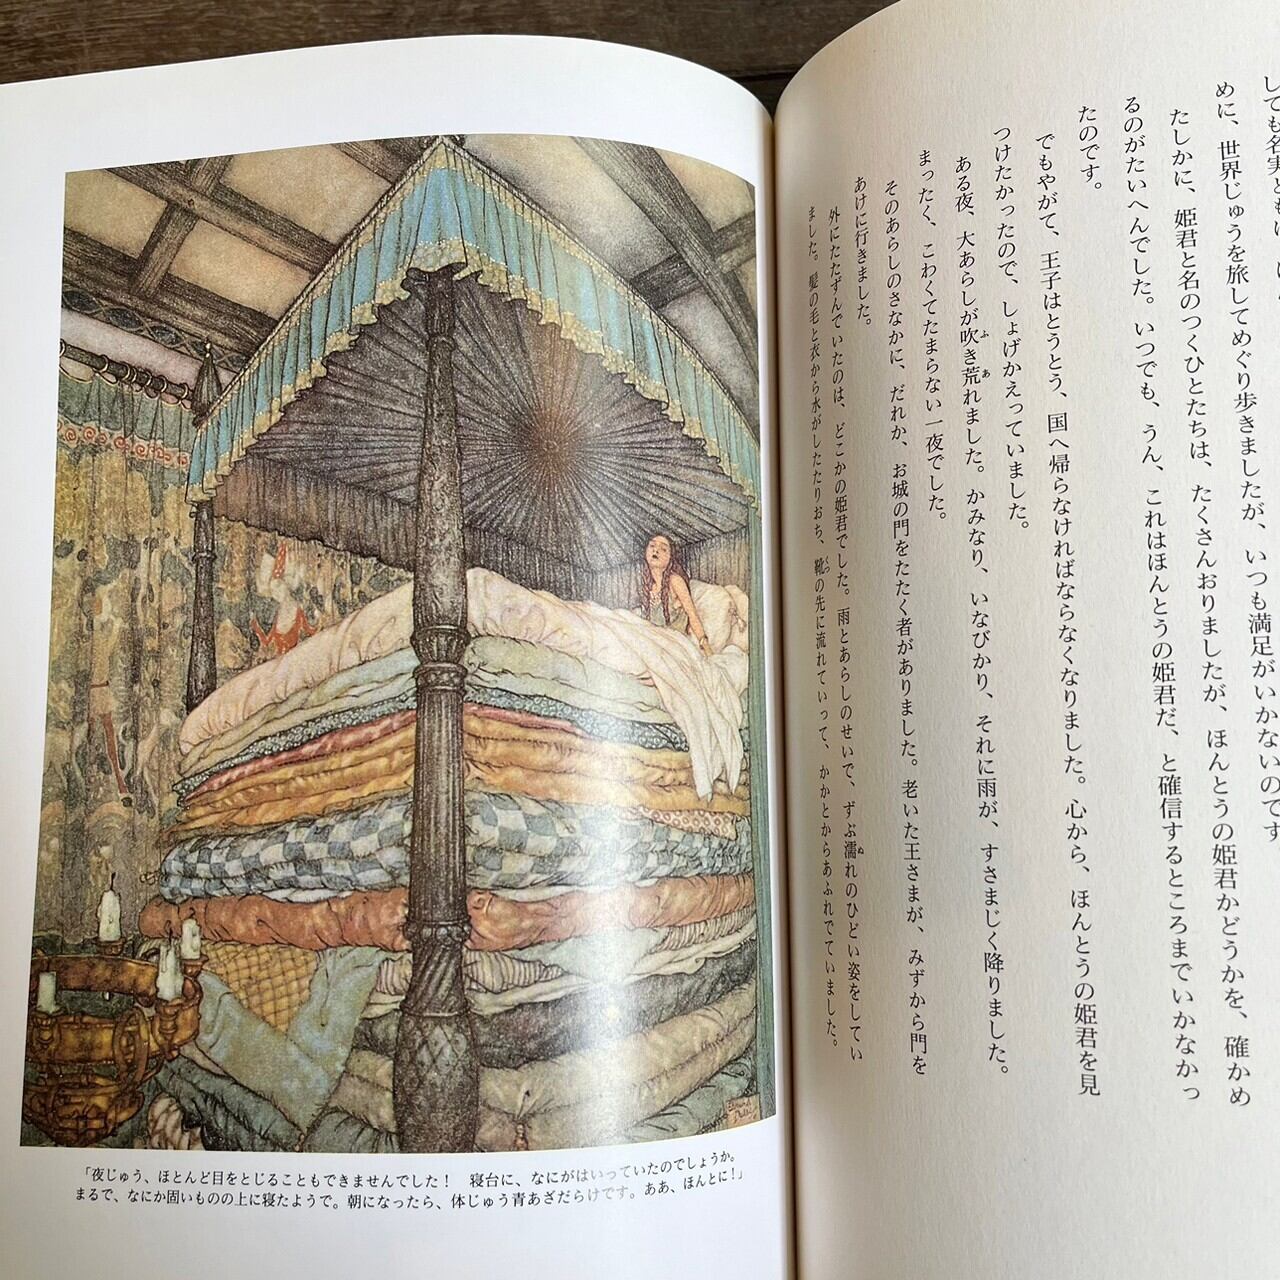 しても名実ともに
めに、世界じゅうを旅してめぐり歩きましたが、いつも満足がいかないのです
たしかに、姫君と名のつくひとたちは、たくさんおりましたが、ほんとうの姫君かどうかを、確かめ
るのがたいへんでした。いつでも、うん、これはほんとうの姫君だ、と確信するところまでいかなかっ
たのです。
でもやがて、王子はとうとう、国へ帰らなければならなくなりました。心から、ほんとうの姫君を見
つけたかったので、しょげかえっていました。
ある夜、大あらしが吹き荒れました。かみなり、いなびかり、それに雨が、すさまじく降りました。
まったく、こわくてたまらない一夜でした。
そのあらしのさなかに、だれか、お城の門をたたく者がありました。老いた王さまが、みずから門を
あけに行きました。
外にたたずんでいたのは、どこかの姫君でした。雨とあらしのせいで、ずぶ濡れのひどい姿をしてい
ました。髪の毛と衣から水がしたたりおち、靴の先に流れていって、かかとからあふれでていました。
「夜じゅう、ほとんど目をとじることもできませんでした！　寝台に、なにがはいっていたのでしょうか。
まるで、なにか固いものの上に寝たようで。朝になったら、体じゅう青あざだらけです。ああ、ほんとに！」